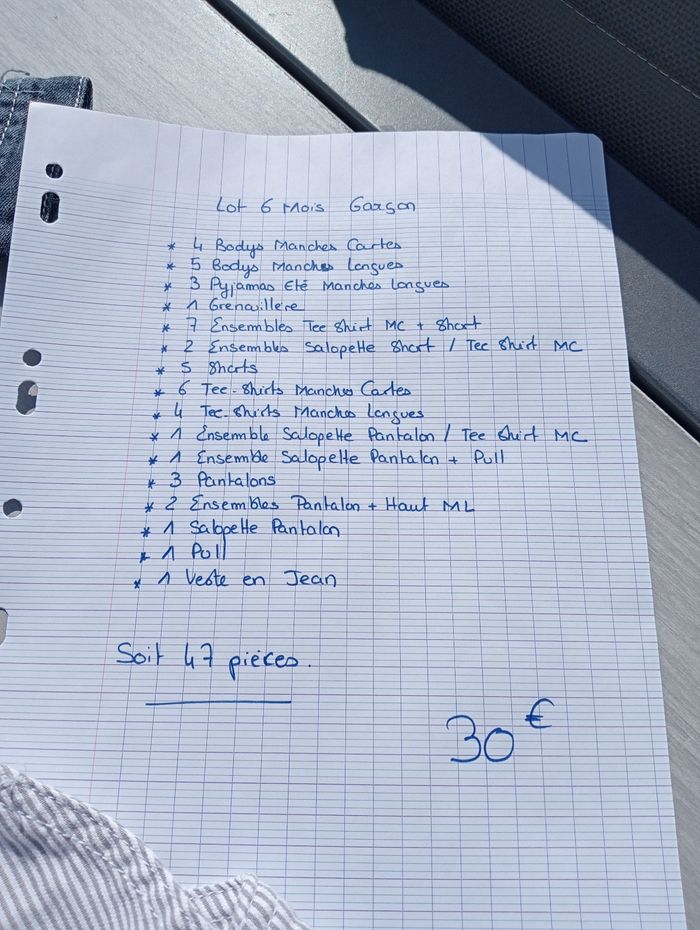 Lot 6 Mois Garçon
* 4 Bodys Manches Cortes
* 5 Bodys Manches Longues
* 3 Pyjamas Eté Manches Longues
* 1 Grenouillere
* 7 Ensembles Tee Shirt MC + Short
* 2 Ensembles Salopette Short / Tee Shirt MC
* 5 Shorts
* 6 Tee-Shirts Manches Cortes
* 4 Tee-Shirts Manches Longues
* 1 Ensemble Salopette Pantalon / Tee Shirt MC
* 1 Ensemble Salopette Pantalon + Pull
* 3 Pantalons
* 2 Ensembles Pantalon + Haut ML
* 1 Salopette Pantalon
* 1 Pull
* 1 Veste en Jean
Soit 47 pièces.
30 €